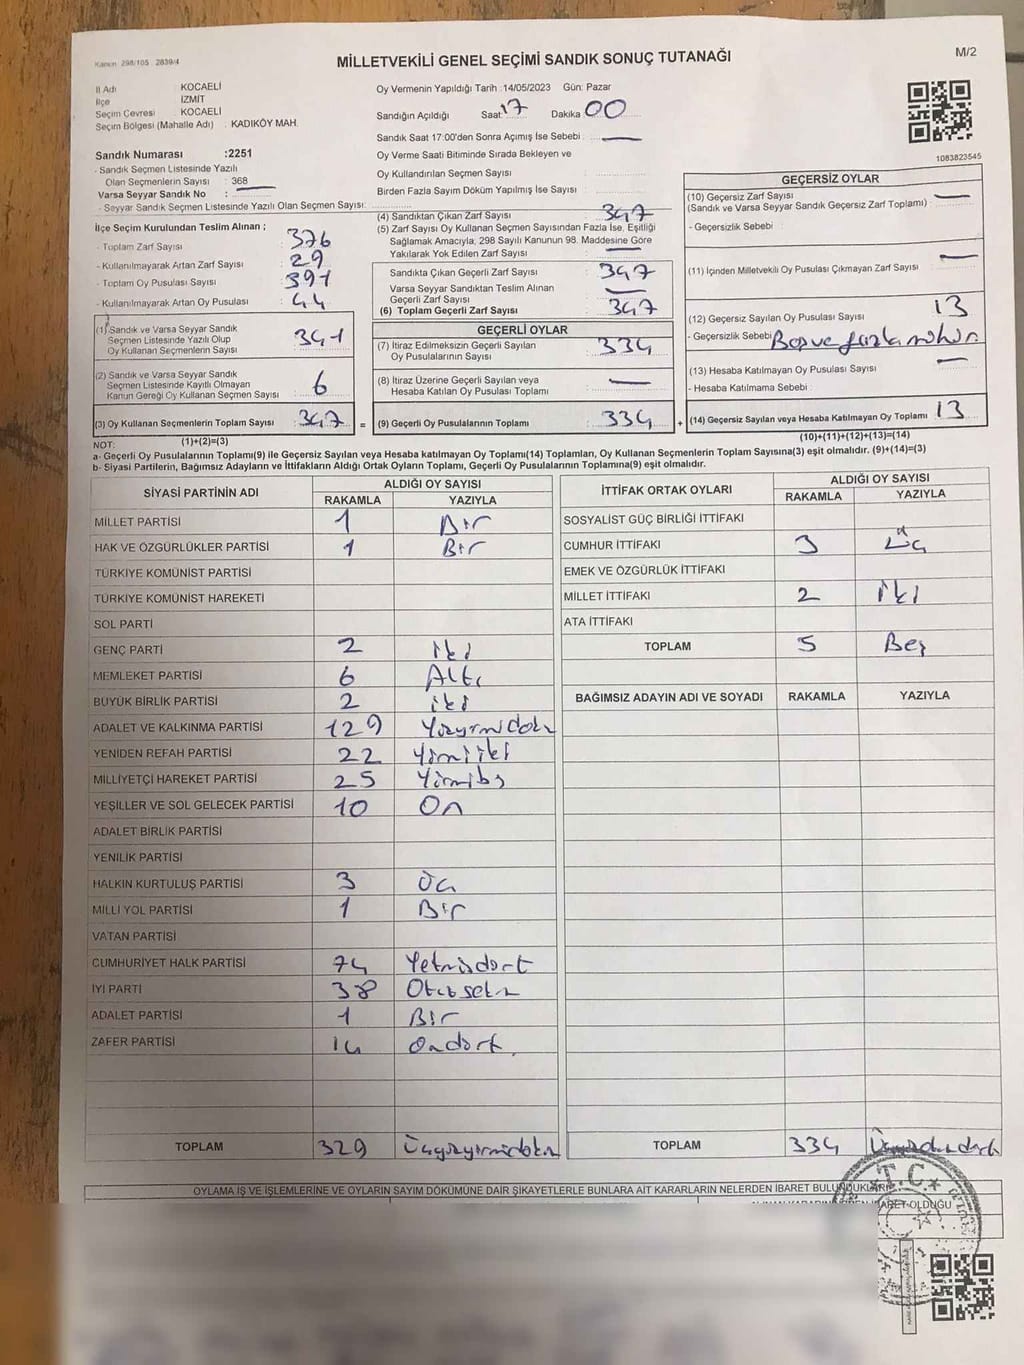 Kanun 298/105 2839/4
MİLLETVEKİLİ GENEL SEÇİMİ SANDIK SONUÇ TUTANAĞI
M/2
İl Adı KOCAELİ
İlçe İZMİT
Seçim Çevresi : KOCAELİ
Seçim Bölgesi (Mahalle Adı) : KADIKÖY MAH.
Sandık Numarası :2251
- Sandık Seçmen Listesinde Yazılı
Olan Seçmenlerin Sayısı : 368
Varsa Seyyar Sandık No :
- Seyyar Sandık Seçmen Listesinde Yazılı Olan Seçmen Sayısı:
Oy Vermenin Yapıldığı Tarih : 14/05/2023 Gün: Pazar
Sandığın Açıldığı Saat: 17 Dakika 00
Sandık Saat 17:00'den Sonra Açımış İse Sebebi : —
Oy Verme Saati Bitiminde Sırada Bekleyen ve
Oy Kullandırılan Seçmen Sayısı
Birden Fazla Sayım Döküm Yapılmış İse Sayısı :
1083823545
İlçe Seçim Kurulundan Teslim Alınan ;
- Toplam Zarf Sayısı : 376
- Kullanılmayarak Artan Zarf Sayısı : 29
- Toplam Oy Pusulası Sayısı : 391
- Kullanılmayarak Artan Oy Pusulası : 44
(1) Sandık ve Varsa Seyyar Sandık
Seçmen Listesinde Yazılı Olup
Oy Kullanan Seçmenlerin Sayısı : 341
(2) Sandık ve Varsa Seyyar Sandık
Seçmen Listesinde Kayıtlı Olmayan
Kanun Gereği Oy Kullanan Seçmen Sayısı : 6
(3) Oy Kullanan Seçmenlerin Toplam Sayısı : 347
(4) Sandıktan Çıkan Zarf Sayısı : 347
(5) Zarf Sayısı Oy Kullanan Seçmen Sayısından Fazla İse, Eşitliği
Sağlamak Amacıyla, 298 Sayılı Kanunun 98. Maddesine Göre
Yakılarak Yok Edilen Zarf Sayısı : —
Sandıkta Çıkan Geçerli Zarf Sayısı : 347
Varsa Seyyar Sandıktan Teslim Alınan
Geçerli Zarf Sayısı : —
(6) Toplam Geçerli Zarf Sayısı : 347
GEÇERLİ OYLAR
(7) İtiraz Edilmeksizin Geçerli Sayılan
Oy Pusulalarının Sayısı : 334
(8) İtiraz Üzerine Geçerli Sayılan veya
Hesaba Katılan Oy Pusulası Toplamı : —
= (9) Geçerli Oy Pusulalarının Toplamı : 334 +
GEÇERSİZ OYLAR
(10) Geçersiz Zarf Sayısı —
(Sandık ve Varsa Seyyar Sandık Geçersiz Zarf Toplamı) :
- Geçersizlik Sebebi :
(11) İçinden Milletvekili Oy Pusulası Çıkmayan Zarf Sayısı : —
(12) Geçersiz Sayılan Oy Pusulası Sayısı : 13
- Geçersizlik Sebebi : Boş ve fazla mühür
(13) Hesaba Katılmayan Oy Pusulası Sayısı : —
- Hesaba Katılmama Sebebi :
(14) Geçersiz Sayılan veya Hesaba Katılmayan Oy Toplamı : 13
NOT: (1)+(2)=(3) (10)+(11)+(12)+(13)=(14)
a- Geçerli Oy Pusulalarının Toplamı(9) ile Geçersiz Sayılan veya Hesaba katılmayan Oy Toplamı(14) Toplamları, Oy Kullanan Seçmenlerin Toplam Sayısına(3) eşit olmalıdır. (9)+(14)=(3)
b- Siyasi Partilerin, Bağımsız Adayların ve İttifakların Aldığı Ortak Oyların Toplamı, Geçerli Oy Pusulalarının Toplamına(9) eşit olmalıdır.
SİYASİ PARTİNİN ADI ALDIĞI OY SAYISI
RAKAMLA YAZIYLA
MİLLET PARTİSİ 1 Bir
HAK VE ÖZGÜRLÜKLER PARTİSİ 1 Bir
TÜRKİYE KOMÜNİST PARTİSİ
TÜRKİYE KOMÜNİST HAREKETİ
SOL PARTİ
GENÇ PARTİ 2 iki
MEMLEKET PARTİSİ 6 Altı
BÜYÜK BİRLİK PARTİSİ 2 iki
ADALET VE KALKINMA PARTİSİ 129 Yüzyirmidokuz
YENİDEN REFAH PARTİSİ 22 Yirmiiki
MİLLİYETÇİ HAREKET PARTİSİ 25 Yirmibeş
YEŞİLLER VE SOL GELECEK PARTİSİ 10 On
ADALET BİRLİK PARTİSİ
YENİLİK PARTİSİ
HALKIN KURTULUŞ PARTİSİ 3 Üç
MİLLİ YOL PARTİSİ 1 Bir
VATAN PARTİSİ
CUMHURİYET HALK PARTİSİ 74 Yetmişdört
İYİ PARTİ 38 Otuzsekiz
ADALET PARTİSİ 1 Bir
ZAFER PARTİSİ 14 Ondört.
TOPLAM 329 Üçyüzyirmidokuz
İTTİFAK ORTAK OYLARI ALDIĞI OY SAYISI
RAKAMLA YAZIYLA
SOSYALİST GÜÇ BİRLİĞİ İTTİFAKI
CUMHUR İTTİFAKI 3 Üç
EMEK VE ÖZGÜRLÜK İTTİFAKI
MİLLET İTTİFAKI 2 iki
ATA İTTİFAKI
TOPLAM 5 Beş
BAĞIMSIZ ADAYIN ADI VE SOYADI RAKAMLA YAZIYLA
TOPLAM 334 Üçyüzotuzdört
OYLAMA İŞ VE İŞLEMLERİNE VE OYLARIN SAYIM DÖKÜMÜNE DAİR ŞİKAYETLERLE BUNLARA AİT KARARLARIN NELERDEN İBARET BULUNDUKLARI
İBARET OLDUĞU
T.C.